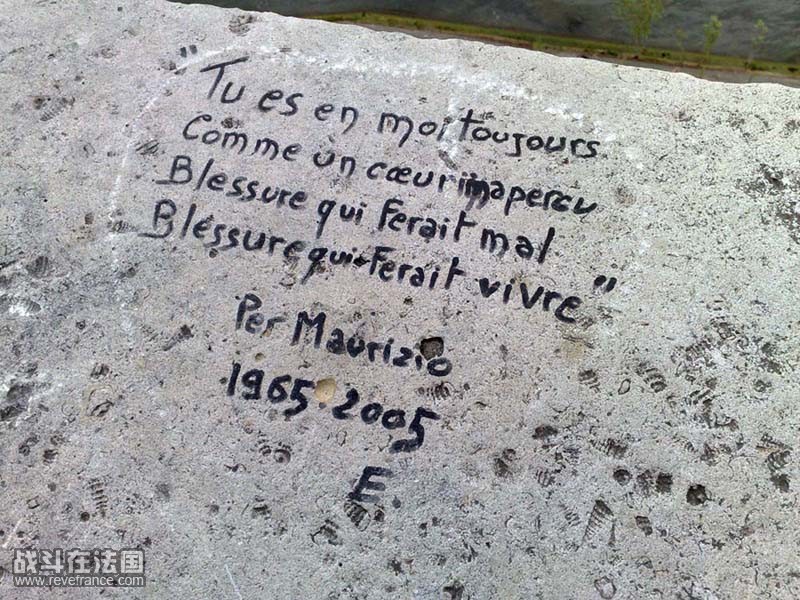 "Tu es en moi toujours
Comme un cœur inaperçu
Blessure qui Ferait mal
Blessure qui Ferait vivre"
Per Maurizio
1965.2005
E.
战斗在法国
www.revefrance.com